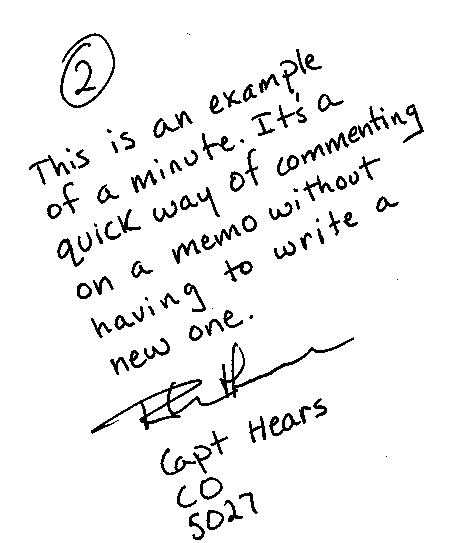 2
This is an example
of a minute. It's a
quick way of commenting
on a memo without
having to write a
new one.
Capt Hears
CO
5027